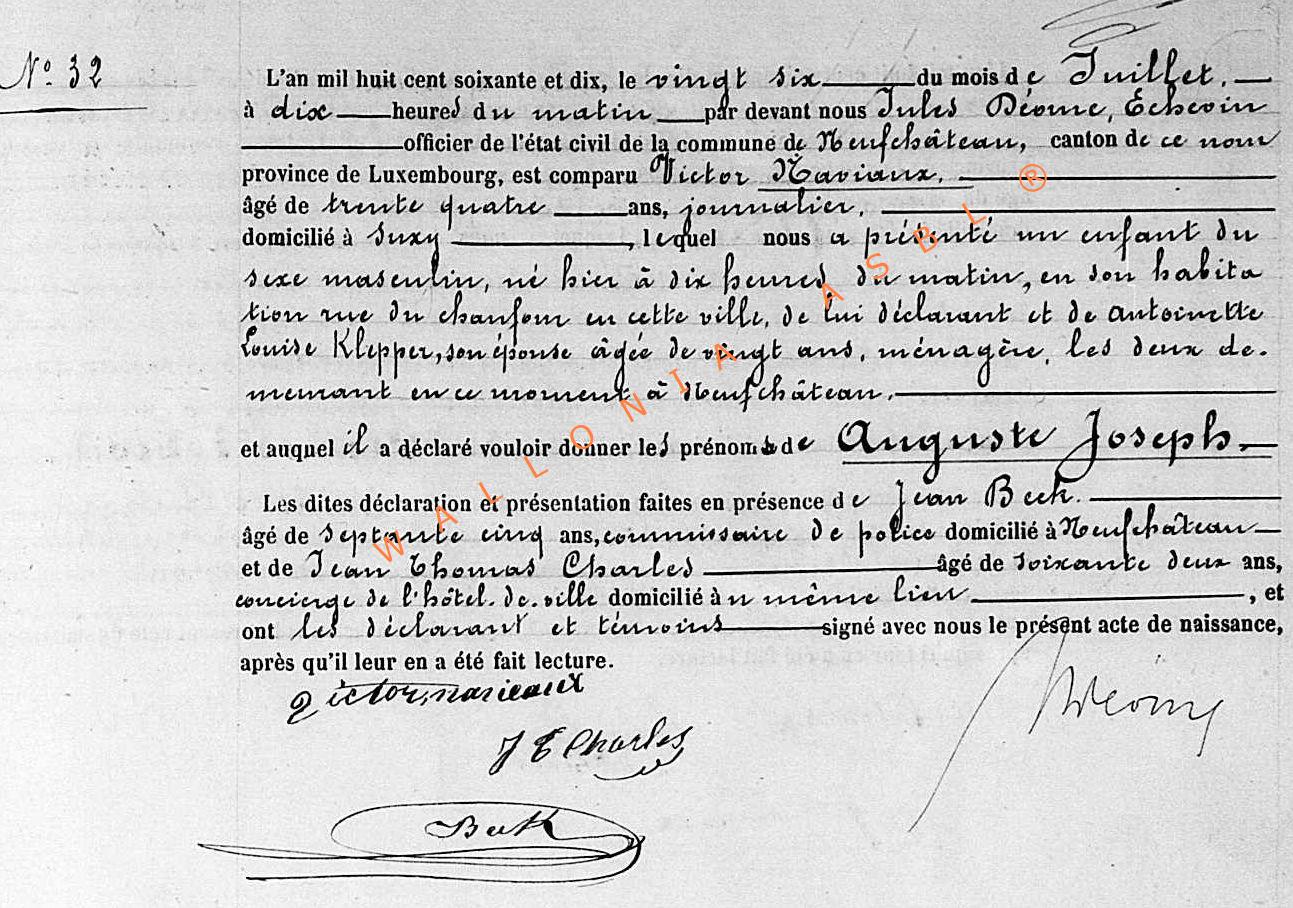 N° 32
L'an mil huit cent soixante et dix, le vingt six du mois de Juillet,
à dix heures du matin par devant nous Jules Déome, Échevin
officier de l'état civil de la commune de Neufchâteau, canton de ce nom
province de Luxembourg, est comparu Victor Naviaux,
âgé de trente quatre ans, journalier,
domicilié à Suxy, lequel nous a présenté un enfant du
sexe masculin, né hier à dix heures du matin, en son habita
tion rue du chaufour en cette ville, de lui déclarant et de Antoinette
Louise Klepper, son épouse âgée de vingt ans, ménagère, les deux de-
meurant en ce moment à Neufchâteau,
et auquel il a déclaré vouloir donner les prénoms de Auguste Joseph.
Les dites déclaration et présentation faites en présence de Jean Beck.
âgé de septante cinq ans, commissaire de police domicilié à Neufchâteau
et de Jean Thomas Charles âgé de soixante deux ans,
concierge de l'hôtel-de-ville domicilié au même lieu, et
ont les déclarant et témoins signé avec nous le présent acte de naissance,
après qu'il leur en a été fait lecture.
Victor, navieaux
JDéome
J T Charles
Beck
WALLONIA ASBL ®